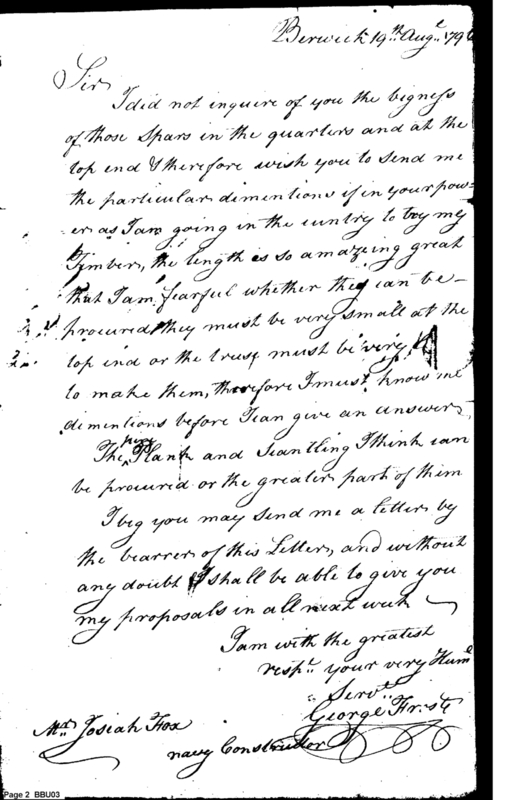 Berwick 19th Augt. 179
Sir
I did not inquire of you the bigness
of those Spars in the quarters and at the
top end & therefore wish you to send me
the particular dimentions if in your pow-
er as I am going in the cuntry to try my
Timber, the length is so amazeing great
that I am fearful whether they can be
procured they must be very small at the
top end or the trees must be very
to make them, therefore I must know me
dimentions before I can give an answer
The Plank and Scantling I think can
be procured or the greater part of them
I beg you may send me a letter by
the bearrer of this Letter, and without
any doubt I shall be able to give you
my proposals in all next week
I am with the greatest
respt. your very Humle
Servt
George
Mr. Josiah Fox
navy Constructor
Page 2 BBU03